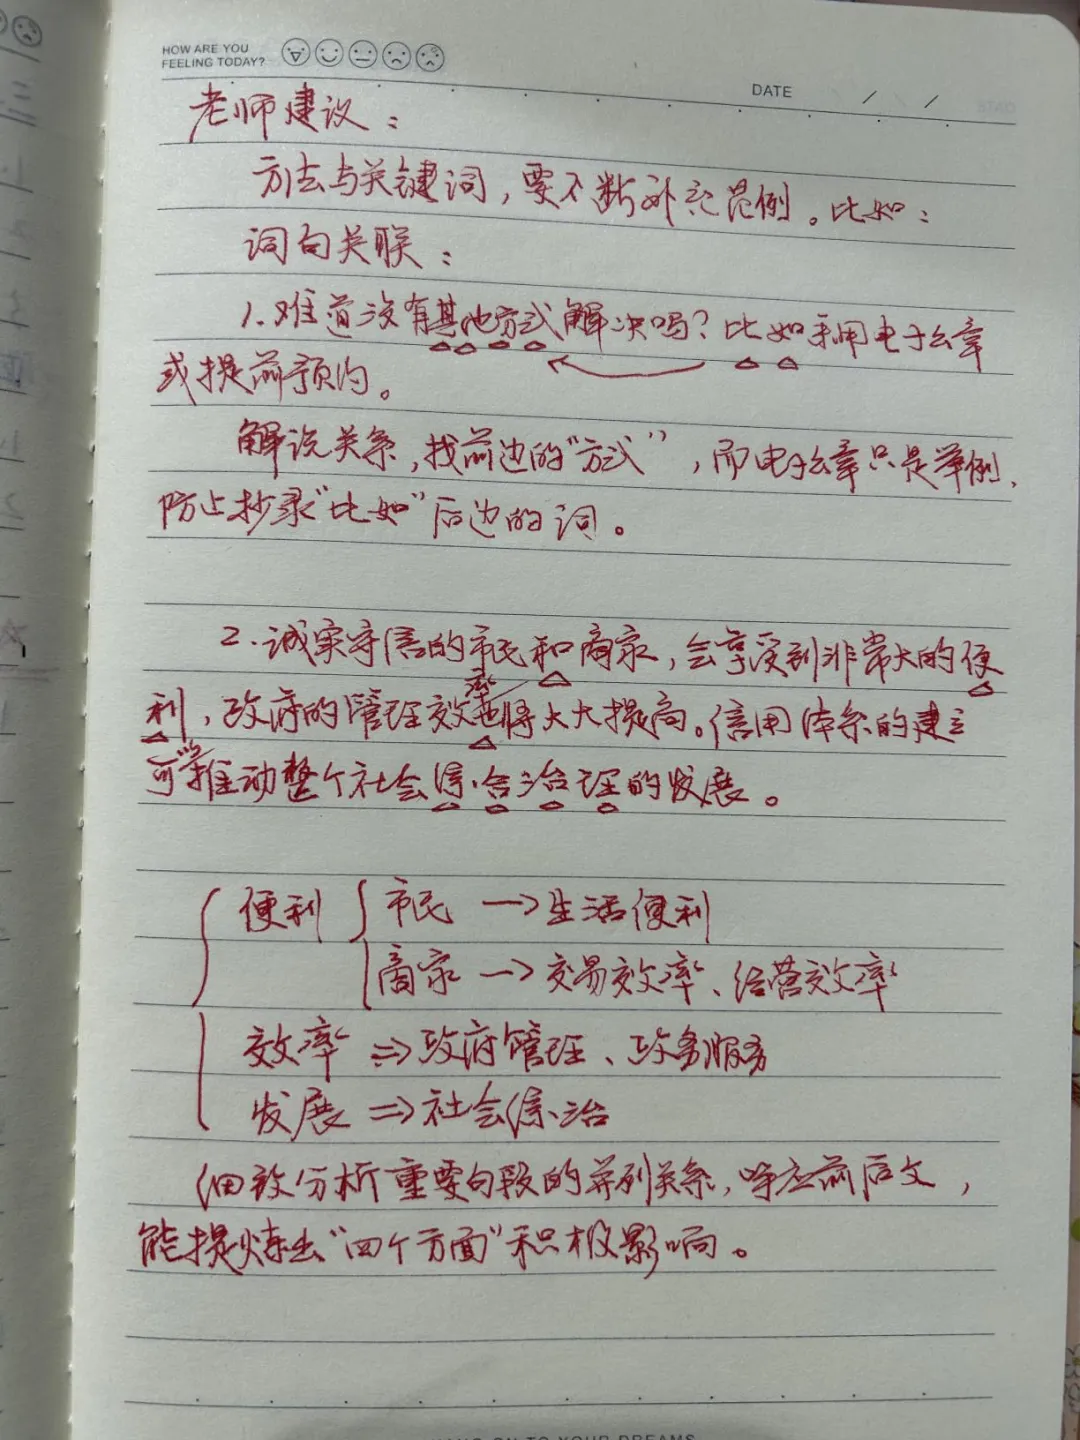 HOW ARE YOU
FEELING TODAY?
DATE / /
老师建议：
方法与关键词，要不断补充范例。比如：
词句关联：
1.难道没有其他方式解决吗？比如利用电子公章
或提前预约。
解说关系，找前边的“方式”，而电子公章只是举例，
防止抄录“比如”后边的词。
2.诚实守信的市民和商家，会享受到非常大的便
利，政府的管理效率也将大大提高。信用体系的建立
可能推动整个社会综合治理的发展。
便利 市民 → 生活便利
商家 → 交易效率、经营效率
效率 => 政府管理、政务服务
发展 => 社会综治
细致分析重要句段的并列关系，呼应前后文，
能提炼出“四个方面”积极影响。